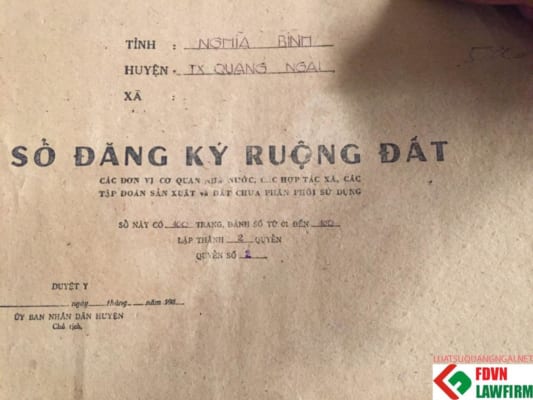 TỈNH : NGHĨA BÌNH
HUYỆN - TX QUẢNG NGÃI
XÃ :
SỔ ĐĂNG KÝ RUỘNG ĐẤT
CÁC ĐƠN VỊ CƠ QUAN NHÀ NƯỚC, CÁC HỢP TÁC XÃ, CÁC
TẬP ĐOÀN SẢN XUẤT và ĐẤT CHƯA PHÂN PHỐI SỬ DỤNG
SỔ NÀY CÓ 100 TRANG, ĐÁNH SỐ TỪ 01 ĐẾN 100
LẬP THÀNH 2 QUYỂN
QUYỂN SỐ 2
DUYỆT Y
ngày tháng năm 198
ỦY BAN NHÂN DÂN HUYỆN
Chủ tịch,
LUATSUQUANGNGAI.NET
FDVN
LAWFIRM